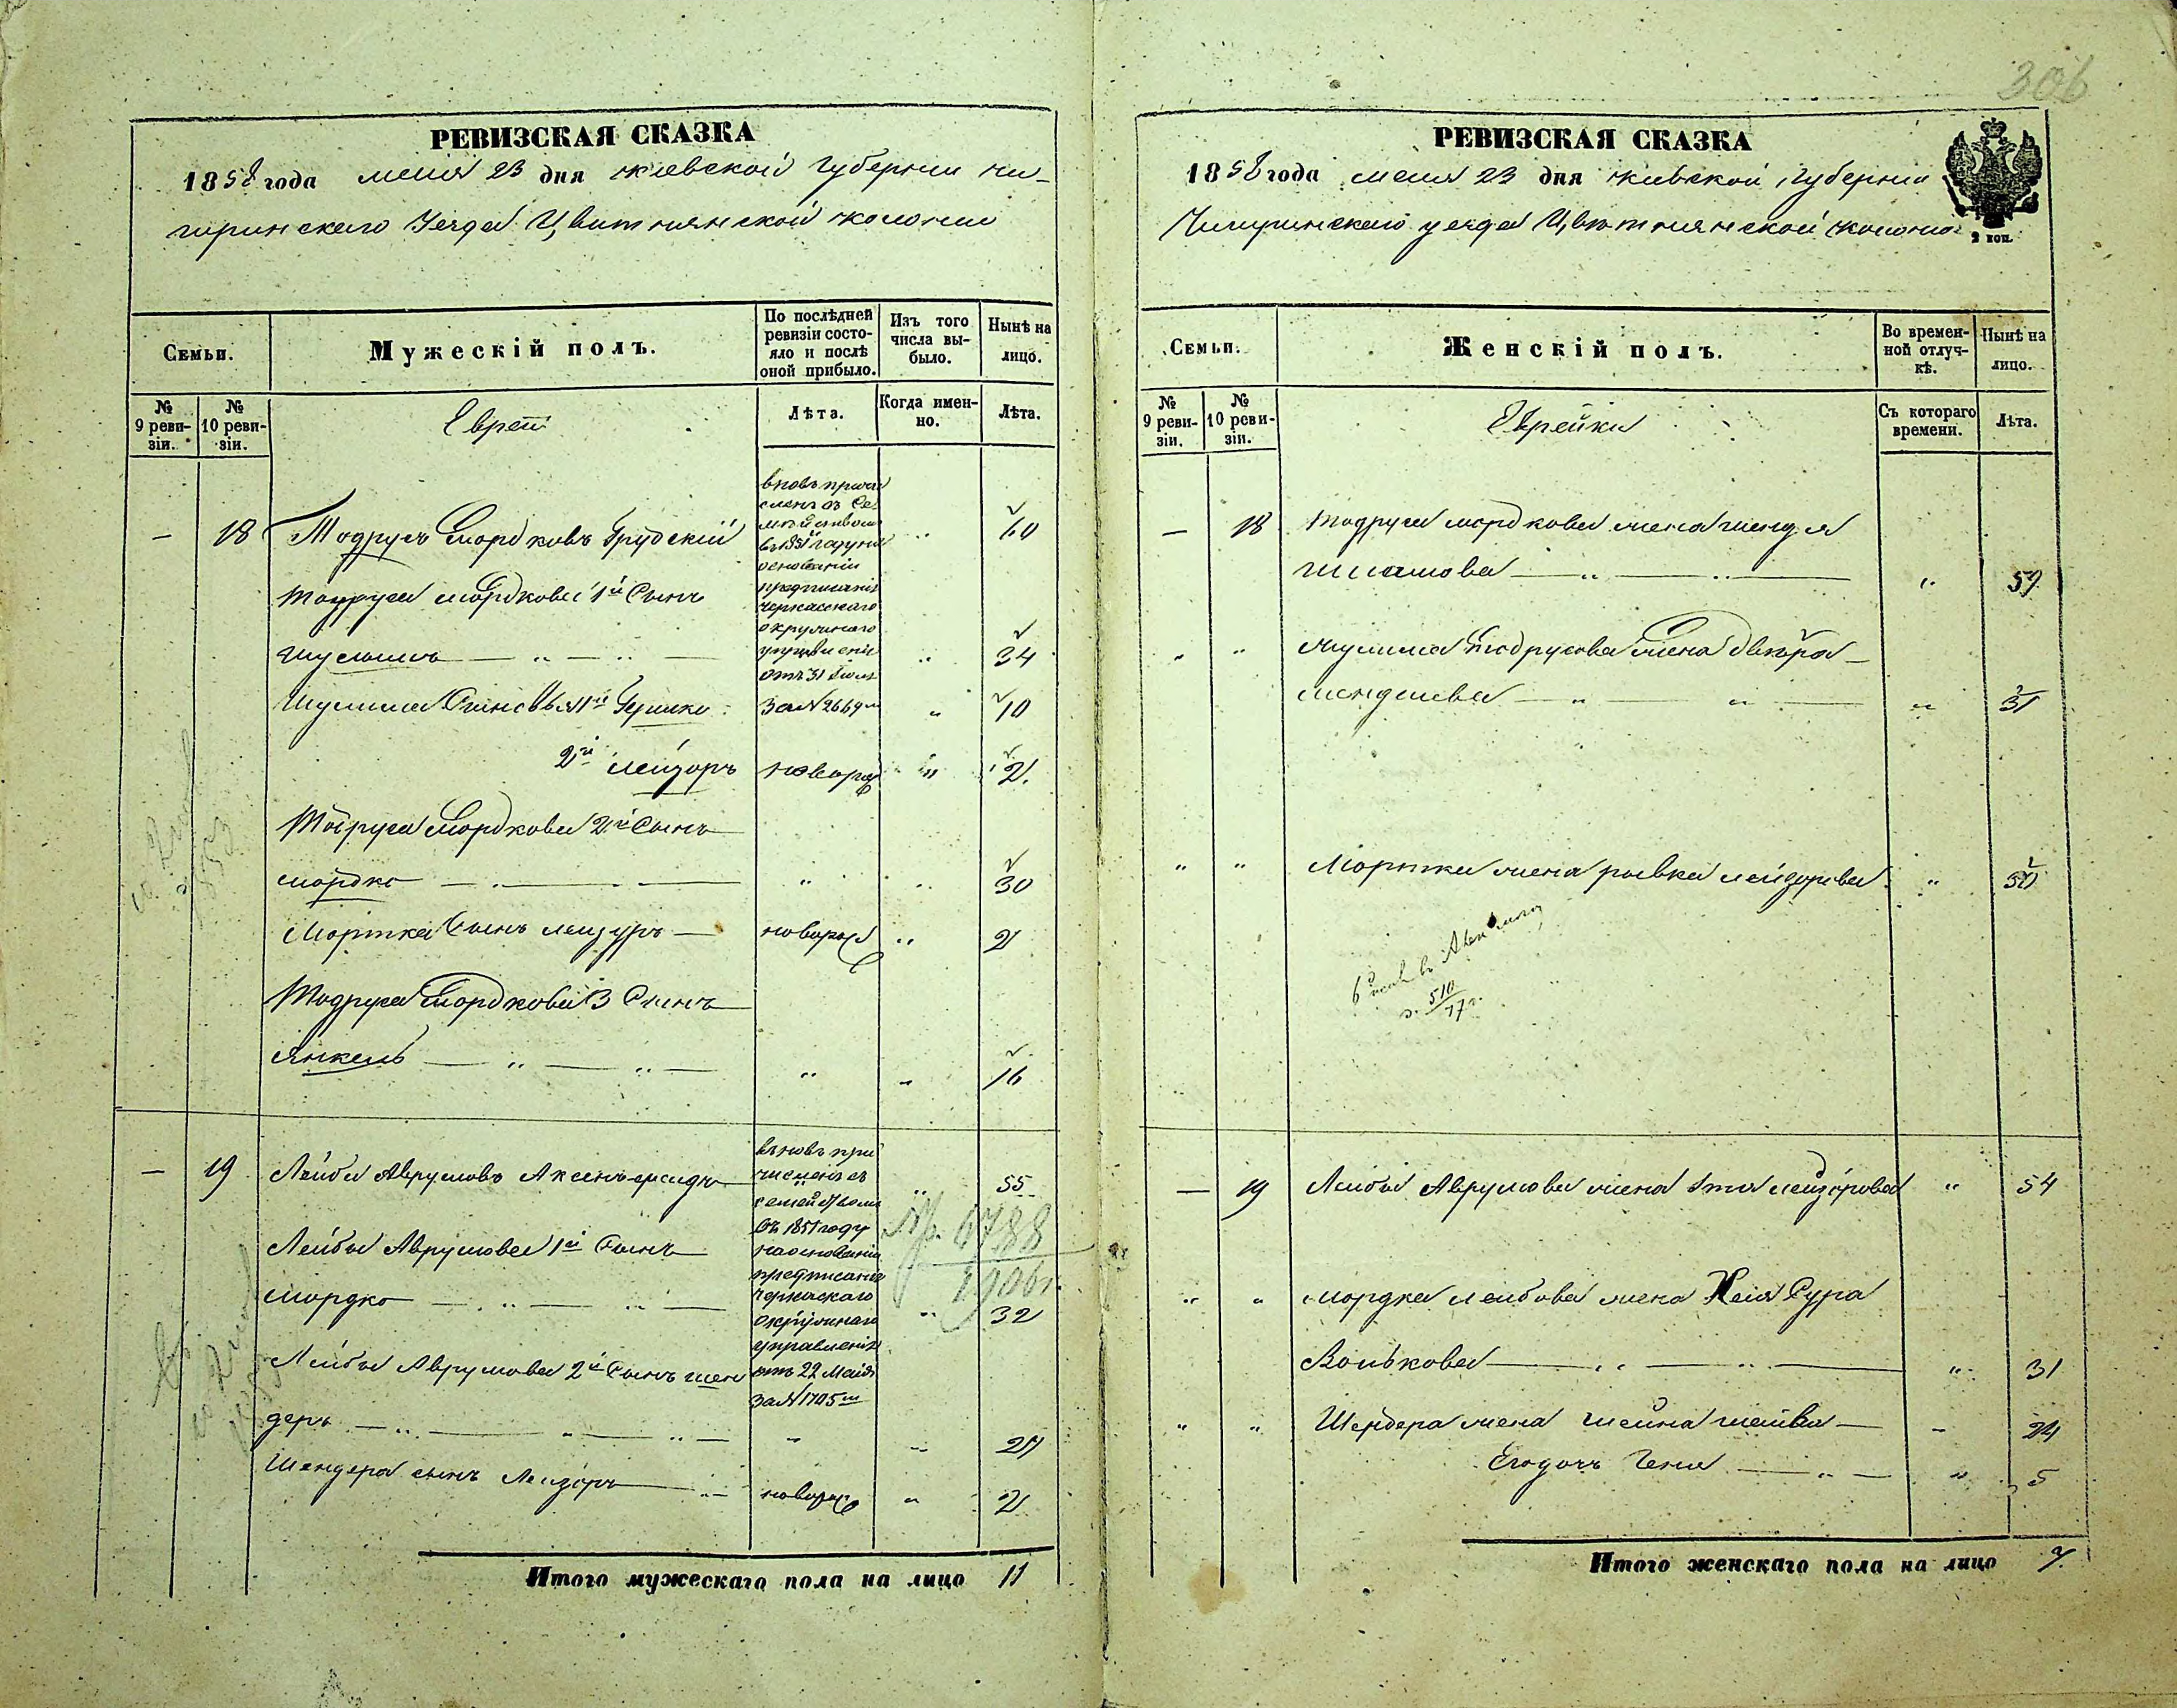 306
РЕВИЗСКАЯ СКАЗКА
1858 года мая 23 дня Киевской Губернии Чи-
гиринского Уезда Цвитнянской колонии
Семьи.
Мужескій полъ.
По послѣдней ревизіи состо-яло и послѣ оной прибыло.
Изъ того числа вы-было.
Нынѣ на лицо.
№ 9 реви-зіи.
№ 10 реви-зіи.
Евреи
Лѣта.
Когда имен-но.
Лѣта.
вновь причи
сленъ съ Се
мъ
въ 1851 году на
основании
— 18 Тодрусъ Мордковъ Грудскій .. 60
предписания
черкасскаго
окружнаго
управления
отъ 31 Июля
за N 2669м
Тодруса Мордкова 1й Сынъ
Шулимъ — „ — „ — „ 34
Шулима Сыновья 1й Гершко „ 10
2й Лейзоръ новорож „ 2.
Тодруса Мордкова 2й Сынъ
Мордко — . — . — „ .. 30
Мортка Сынъ Лейзуръ — новорож „ 2
Тодруса Мордкова 3 Сынъ
Янкель — „ — „ — „ „ 16
вьновь при
численъ съ
семейством
въ 1851 году
на основании
предписания
Черкаскаго
окружнаго
управления
отъ 22 Маия
за N 1705м
— 19 Лейба Аврумовъ .. 55
6788
1906г.
Лейбы Аврумова 1й Сынъ
Мордко — „ — „ — „ 32
Лейбы Аврумова 2й Сынъ Шен
деръ — „ — „ — „ — „ „ 27
Шендера сынъ Лейзоръ — новорож „ 2
Итого мужескаго пола на лицо 11
РЕВИЗСКАЯ СКАЗКА
1858 года мая 23 дня Киевской Губернии
Чигиринскаго уезда Цвитнянской колонии
2 коп.
Семьи.
Женскій полъ.
Во времен-ной отлуч-кѣ.
Нынѣ на лицо.
№ 9 реви-зіи.
№ 10 реви-зіи.
Еврейки
Съ котораго времени.
Лѣта.
— 18 Тодруса Мордкова жена Шендля
— „ — „ — „ 57
„ „ Шулима Тодрусова жена Двейра —
Менделева — „ — „ — „ 31
„ „ Мортка жена Рывка Лейзорова „
510
17 г.
— 19 Лейбы Аврумова жена Этя Лейзорова „ 54
„ „ Мордка Лейбова жена Хая Сура
Волькова — „ — „ — „ 31
„ „ Шендера жена Шейна — „ 24
Егодочь Геня — „ — „ 5
Итого женскаго пола на лицо 7.